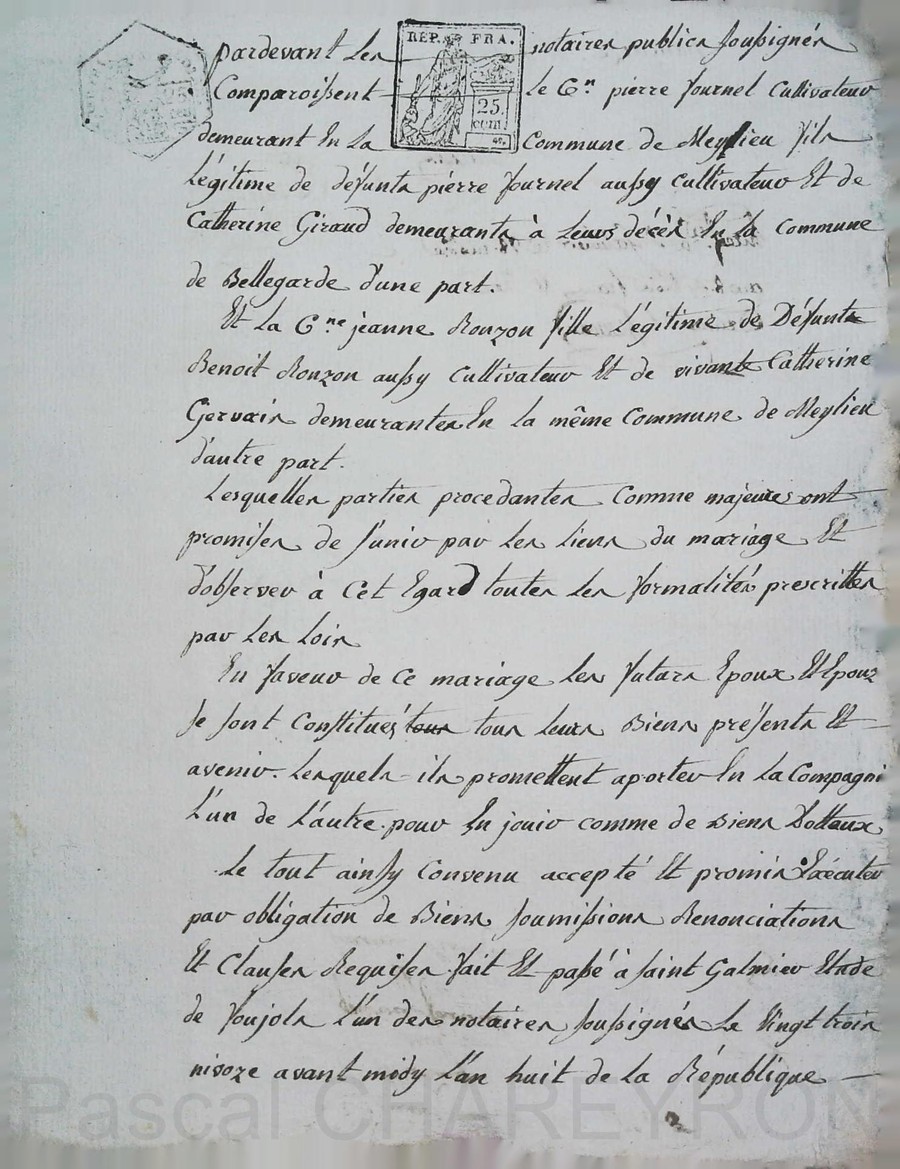 pardevant Les notaires publics soussignés
REP. FRA.
25. cent.
Comparoissent le C.en pierre fournel Cultivateur
demeurant En La Commune de Meylieu fils
Légitime de défunts pierre fournel aussy Cultivateur Et de
Catherine Giraud demeurants à Leurs décès En la Commune
de Bellegarde d'une part.
Et La C.ne jeanne Ronzon fille Légitime de Défunt
Benoit Ronzon aussy Cultivateur Et de vivante Catherine
Gervais demeurantes En La même Commune de Meylieu
d'autre part.
Lesquelles parties procedantes Comme majeures ont
promises de s'unir par Les liens du mariage Et
d'observer à Cet Egard toutes Les formalités prescrittes
par Les Loix
En faveur de Ce mariage Les futurs Epoux Et Epouz
Se sont Constitués tous tous Leurs Biens présents Et
avenir. Lesquels ils promettent aporter En La Compagni
L'un de L'autre pour En jouir comme de Biens Dottaux
Le tout ainsy Convenu accepté Et promis Exécuter
par obligation de Biens soumissions Renonciations
Et Clauses Requises fait Et passé à saint Galmier Etude
de foujols L'un des notaires soussignés Le Vingt trois
nivoze avant midy L'an huit de La République
Pascal CHAREYRON